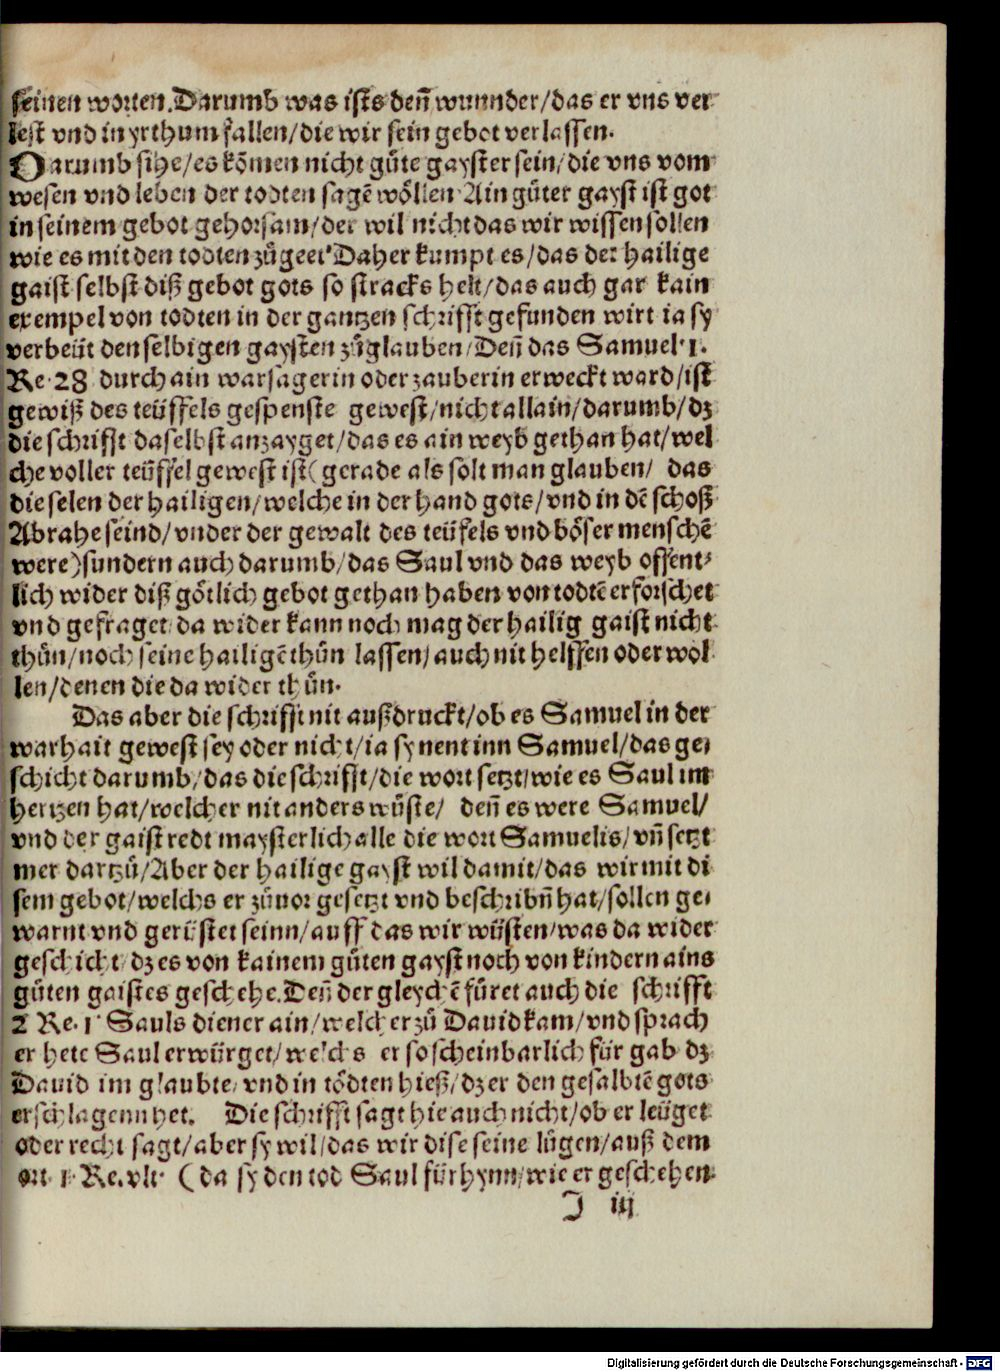 seinen worten. Darumb was ists deñ wunnder/das er vns ver
lest vnd in yrthum fallen/die wir sein gebot verlassen.
Darumb sihe/es kõmen nicht gůte gayster sein/die vns vom
wesen vnd leben der todten sagẽ wöllen. Ain gůter gayst ist got
in seinem gebot gehorsam/der wil nicht das wir wissen sollen
wie es mit den todten zůgeet. Daher kumpt es/das der hailige
gaist selbst diß gebot gots so stracks helt/das auch gar kain
exempel von todten in der gantzen schrifft gefunden wirt ia sy
verbeüt denselbigen gaysten zůglauben/Deñ das Samuel. 1.
Re. 28 durch ain warsagerin oder zauberin erweckt ward/ist
gewiß des teüffels gespenste gewest/nicht allain/darumb/dz
die schrifft daselbst anzayget/das es ain weyb gethan hat/wel
che voller teüffel gewest ist(gerade als solt man glauben/ das
die selen der hailigen/welche in der hand gots/vnd in dẽ schoß
Abrahe seind/vnder der gewalt des teüfels vnd böser menschẽ
were)sundern auch darumb/das Saul vnd das weyb offent⸗
lich wider diß götlich gebot gethan haben von todtẽ erforschet
vnd gefraget/da wider kann noch mag der hailig gaist nicht
thůn/noch seine hailigẽ thůn lassen/auch nit helffen oder wol
len/denen die da wider thůn.
Das aber die schrifft nit außdruckt/ob es Samuel in der
warhait gewest sey oder nicht/ia sy nent inn Samuel/das ge⸗
schicht darumb/das die schrifft/die wort setzt/wie es Saul im
hertzen hat/welcher nit anders wüste/ deñ es were Samuel/
vnd der gaist redt maysterlich alle die wort Samuelis/vñ setzt
mer dartzů/Aber der hailige gayst wil damit/das wir mit di
sem gebot/welchs er zůuor gesetzt vnd beschribñ hat/sollen ge⸗
warnt vnd gerüstet seinn/auff das wir wüsten/was da wider
geschicht/dz es von kainem gůten gayst noch von kindern ains
gůten gaistes geschehe. Deñ der gleychẽ füret auch die schrifft
2 Re. 1. Sauls diener ain/welcher zů Dauid kam/vnd sprach
er hete Saul erwürget/welchs er so scheinbarlich für gab dz
Dauid im glaubte/vnd in tödten hieß/dz er den gesalbtẽ gots
erschlagenn het. Die schrifft sagt hie auch nicht/ob er leüget
oder recht sagt/aber sy wil/das wir dise seine lügen/auß dem
ort. 1. Re. vlt. (da sy den tod Saul fürhynn/wie er geschehen
J iij
Digitalisierung gefördert durch die Deutsche Forschungsgemeinschaft - DFG